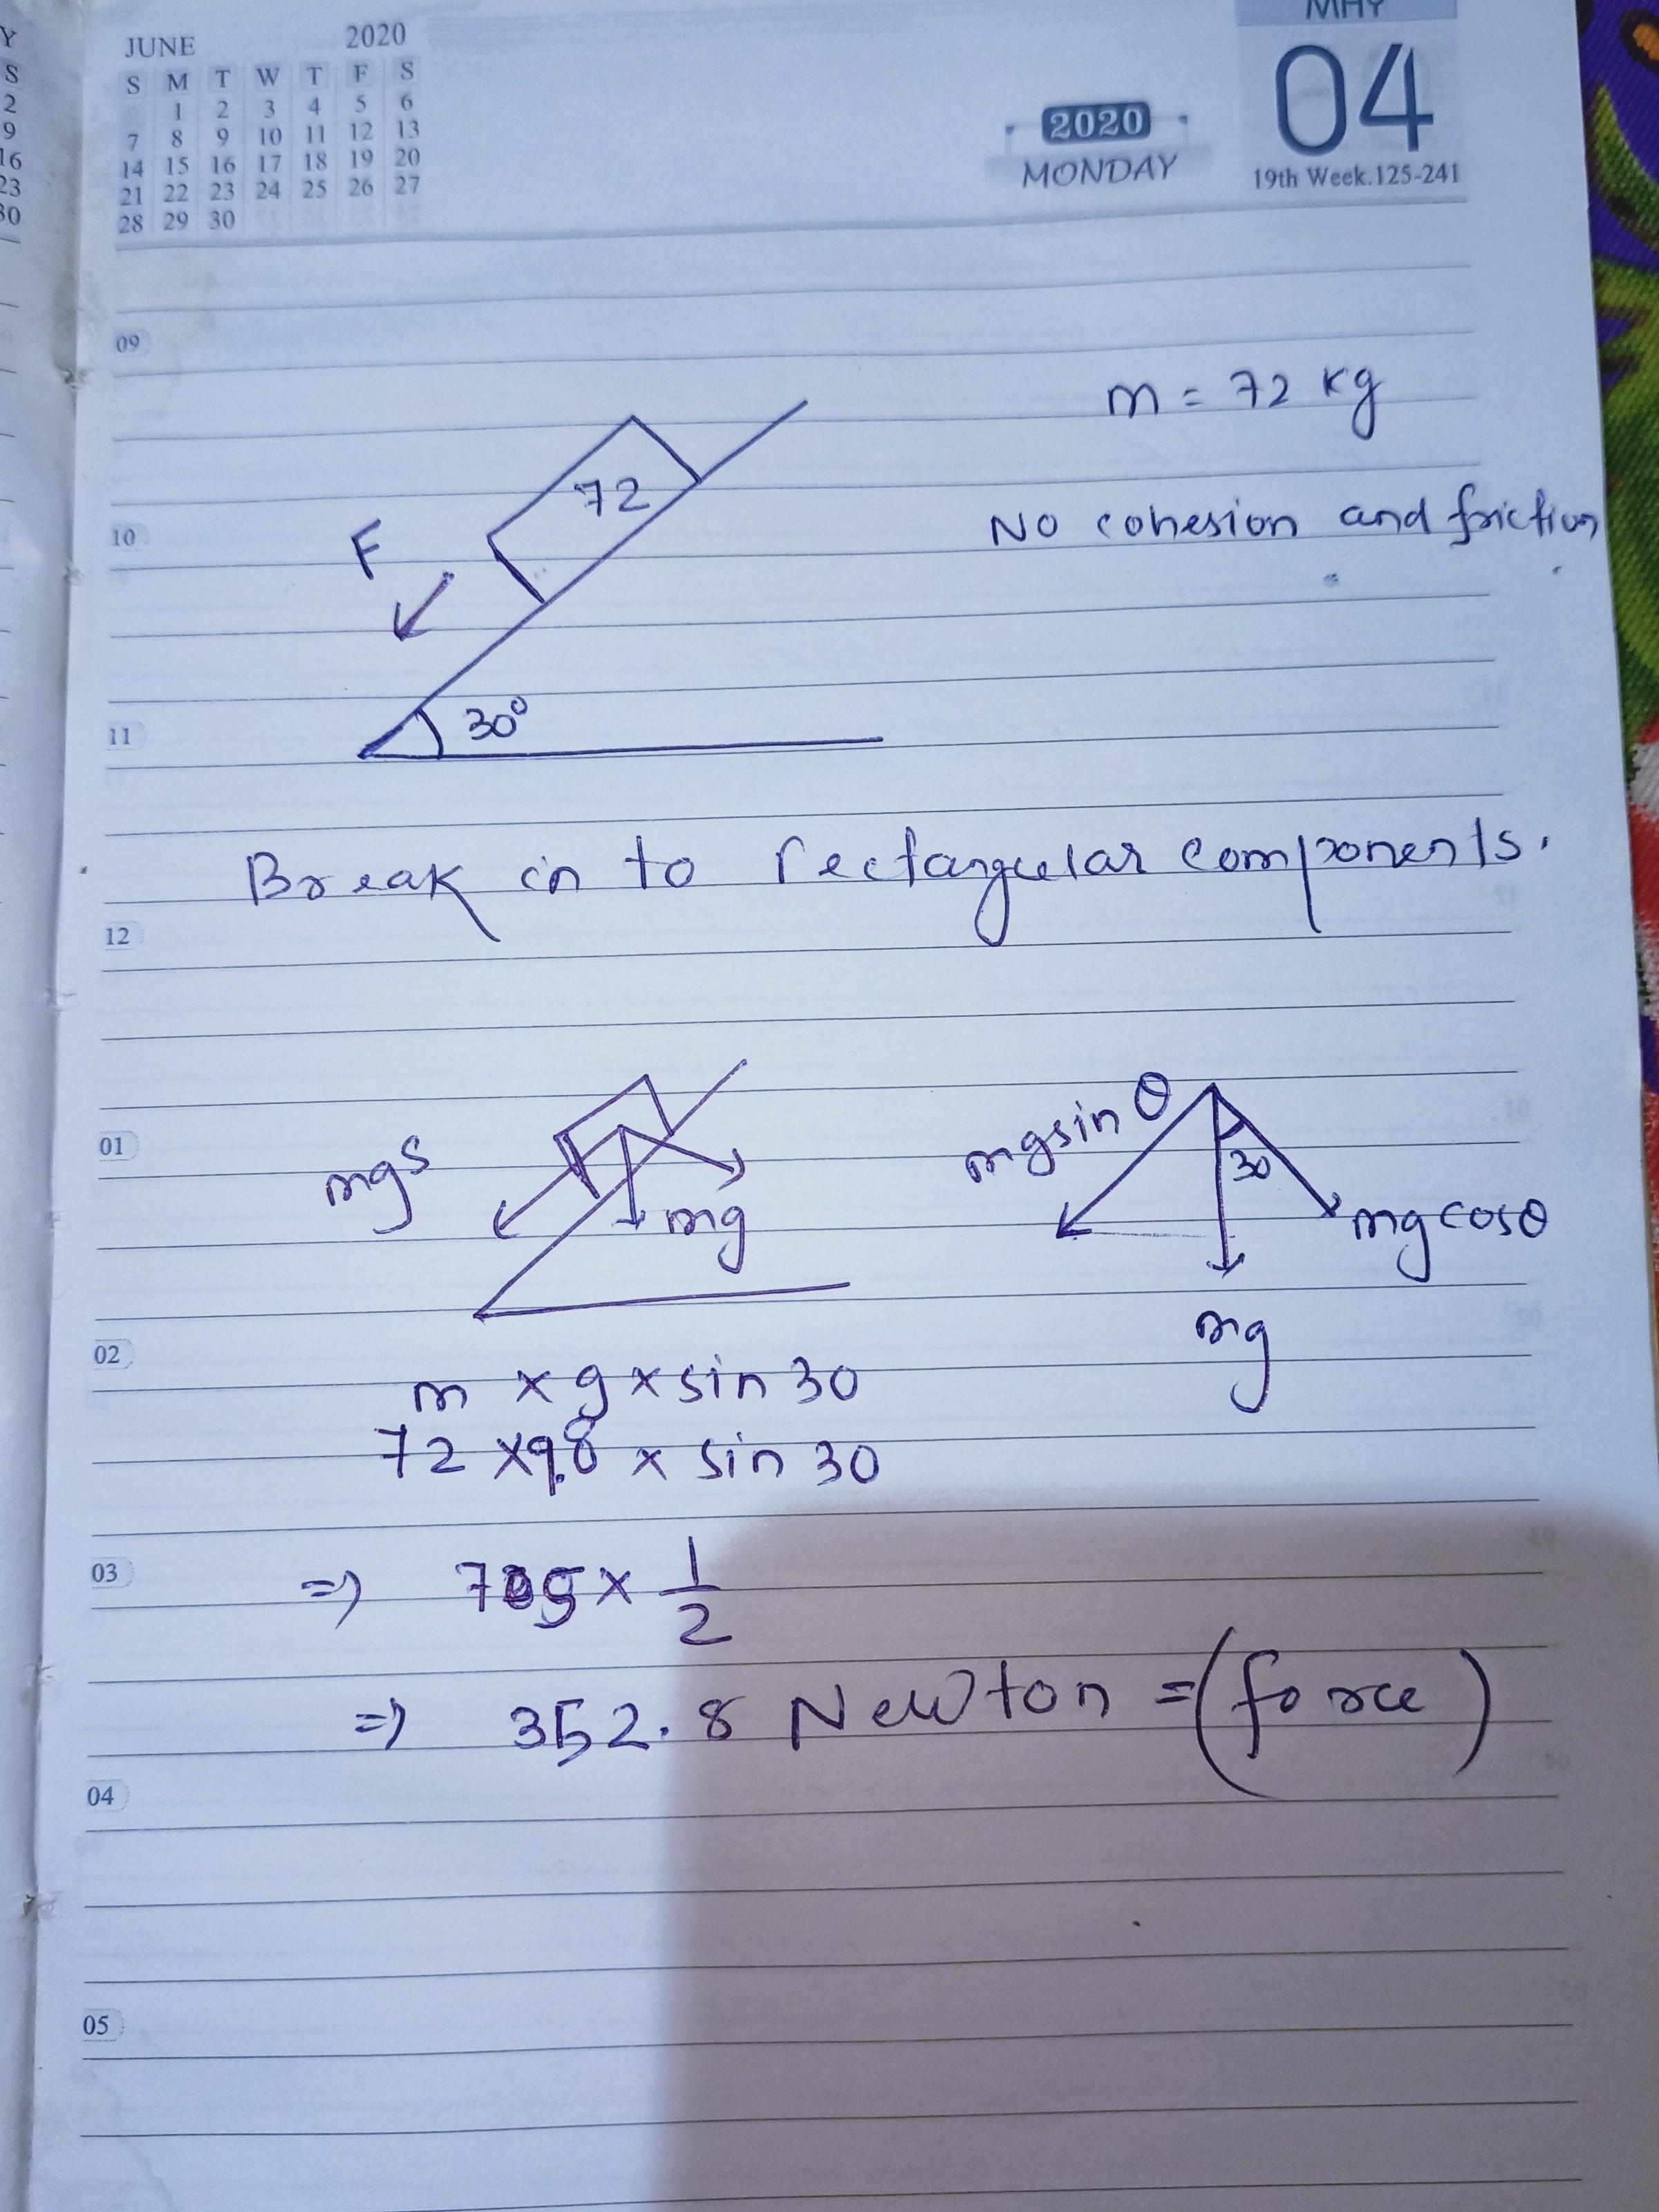 Y
S
2
9
16
23
30
JUNE 2020
S M T W T F S
1 2 3 4 5 6
7 8 9 10 11 12 13
14 15 16 17 18 19 20
21 22 23 24 25 26 27
28 29 30
MAY
04
2020
MONDAY
19th Week.125-241
09
m = 72 kg
72
No cohesion and friction
10
F
30°
11
Break in to rectangular components.
12
01
mgs
mg
mgsin θ
30
mg cosθ
mg
02
m × g × sin 30
72 × 9.8 × sin 30
03
⇒ 705 × 1/2
⇒ 352.8 Newton = (force)
04
05